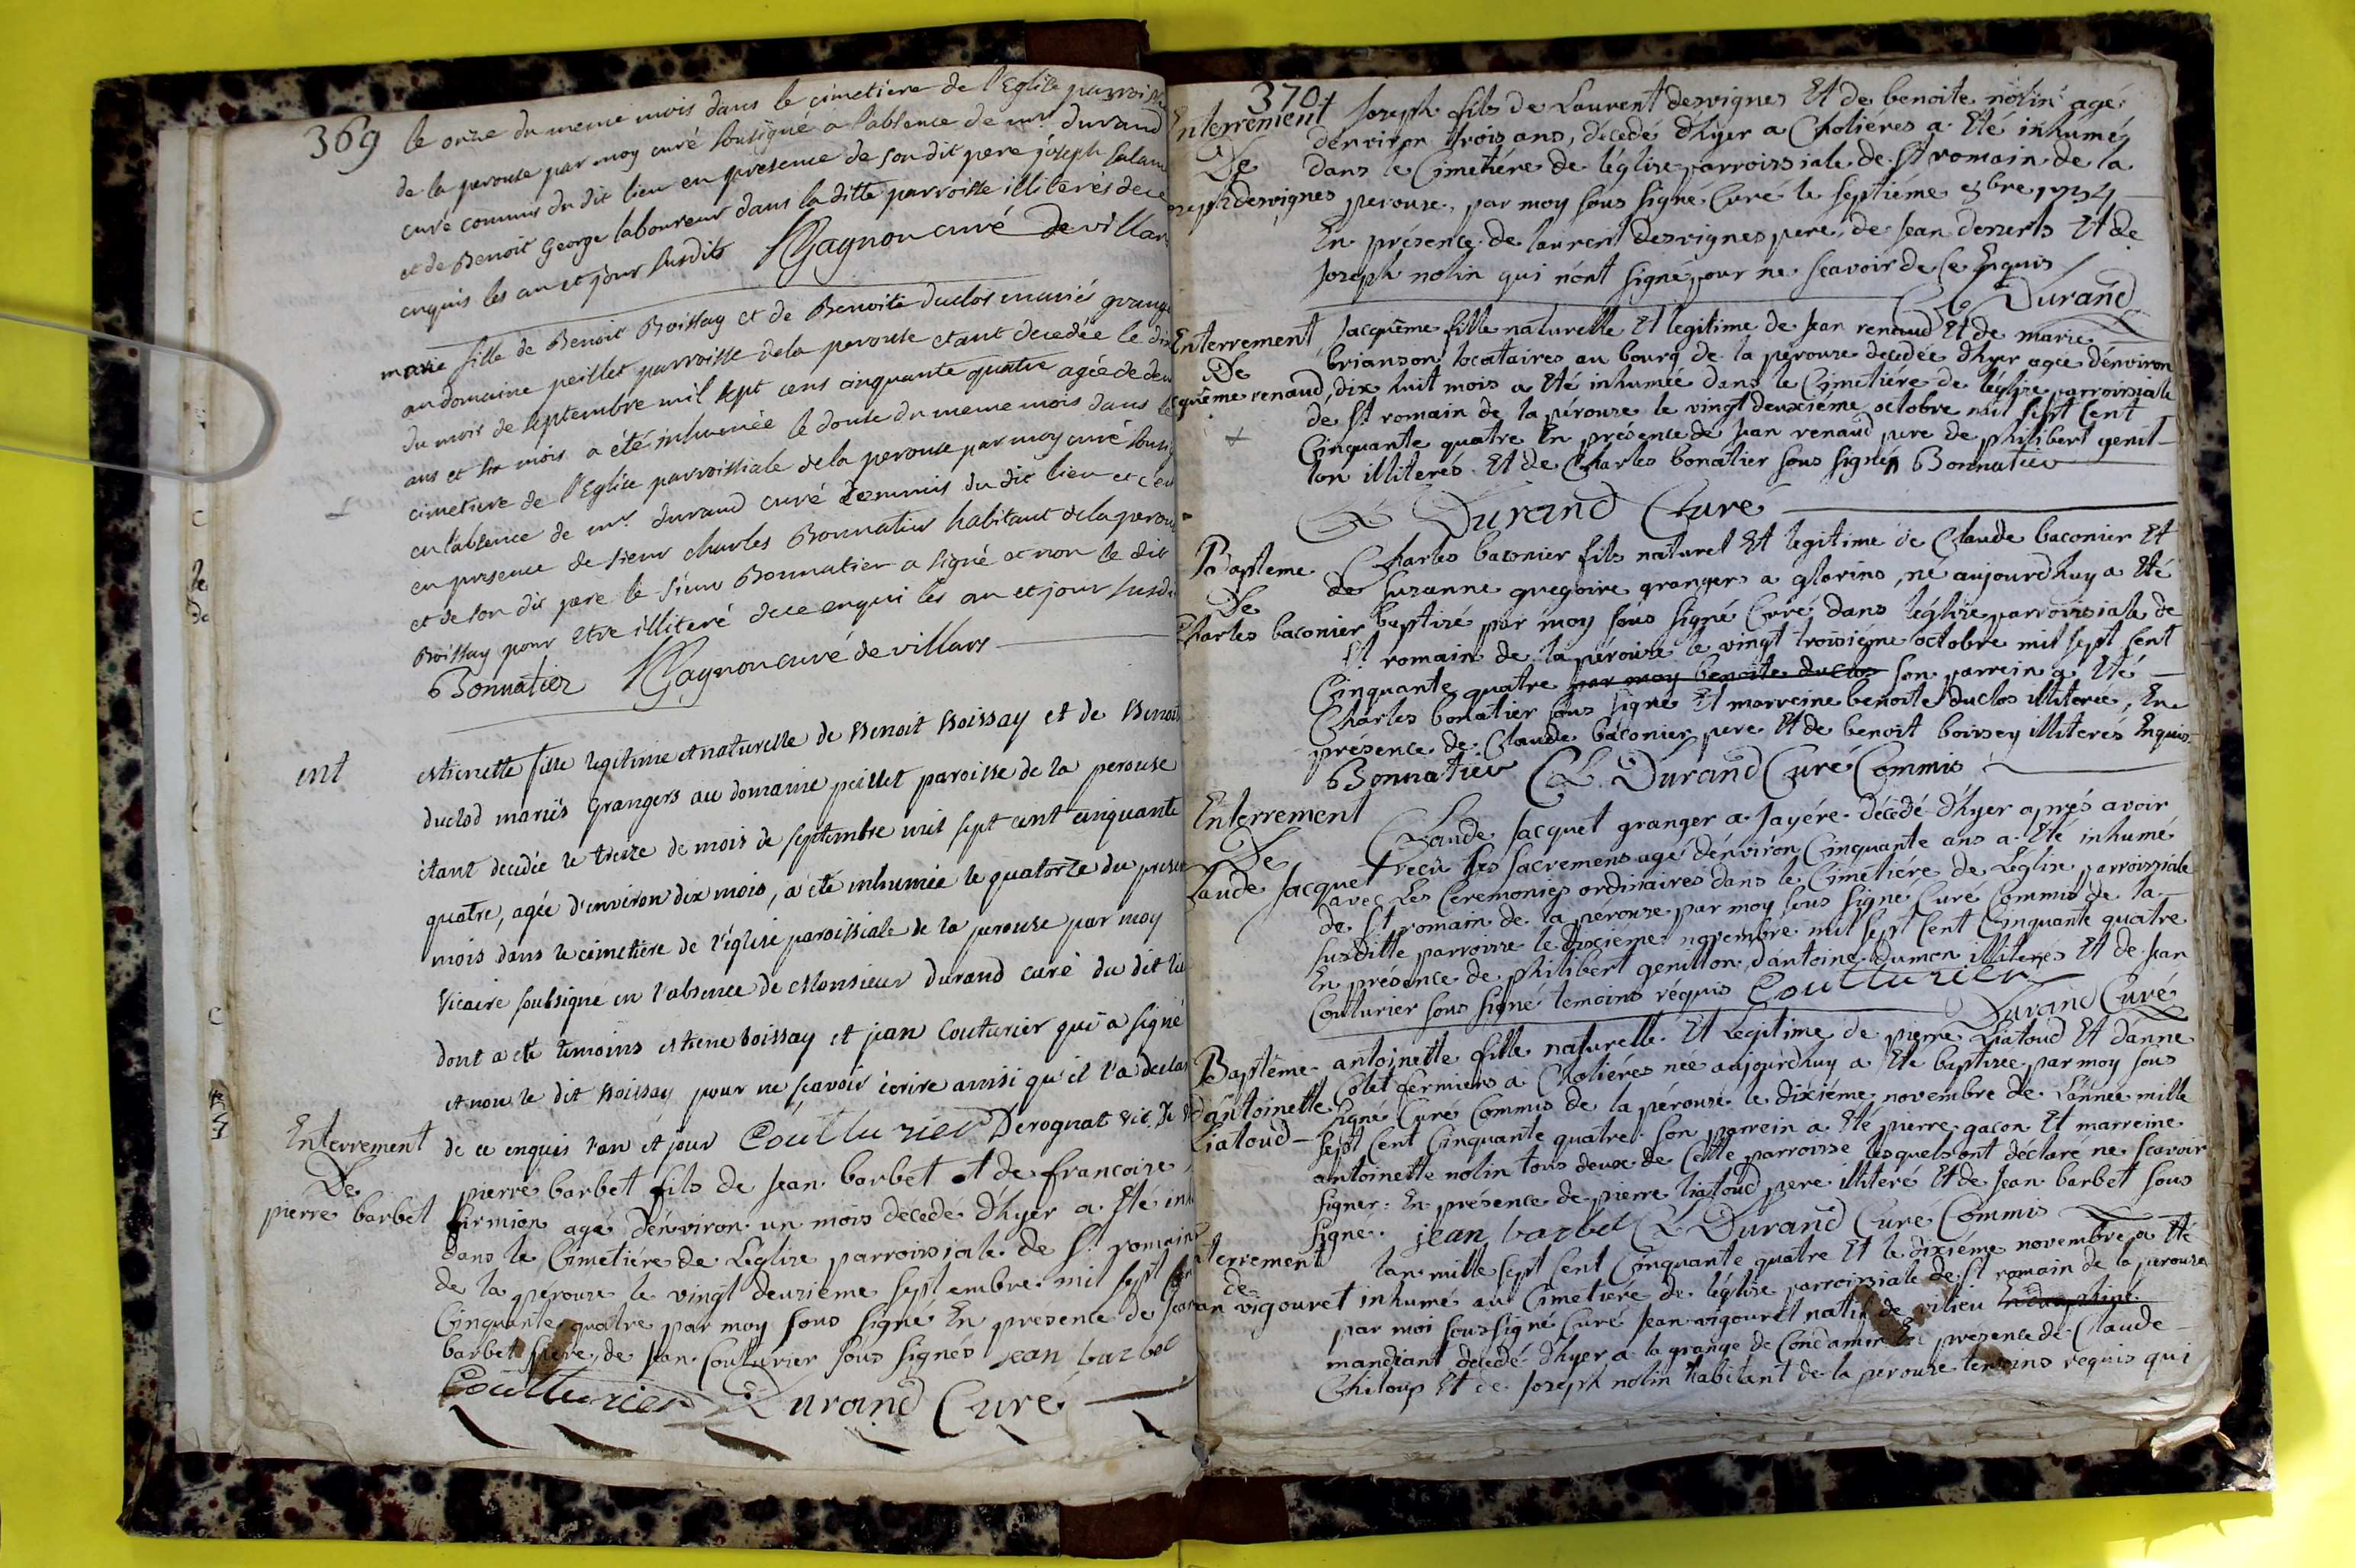 369
le onze du meme mois dans le cimetiere de l'Eglise parroiss
de la perouse par moy curé sousigné a l'absence de mr durand
curé commis du dit lieu en presence de son dit pere joseph
et de Benoit George laboureur dans la ditte parroisse illiterés de ce
enquis les an et jour susdits Gagnon curé de villars
marie fille de Benoit Boissay et de Benoite duclos mariés grang
au domaine peillet parroisse de la perouse etant decedée le di
du mois de septembre mil sept cens cinquante quatre agée de deu
ans et six mois a été inhumée le douse du meme mois dans le
cimetiere de l'Eglise parroissiale de la perouse par moy curé sousig
en l'absence de mr durand curé commis du dit lieu et ce
en presence de sieur charles Bonnatier habitant de la perou
et de son dit pere le sieur Bonnatier a signé et non le dit
Boissay pour etre illiteré de ce enqui les an et jour susdi
Bonnatier Gagnon curé de villars
ent
estienette fille legitime et naturelle de Benoit Boissay et de Benoit
duclod mariés Grangers au domaine peillet paroisse de la perouse
étant decedée le treize de mois de septembre mil sept cent cinquante
quatre, agée d'environ dix mois, a été inhumée le quatorze du presen
mois dans le cimetiere de l'église paroissiale de la perouse par moy
Vicaire soubsigné en l'absence de Monsieur Durand curé du dit lie
dont a eté temoins etiene boissay et jean Couturier qui a signé
et non le dit Boissay pour ne scavoir écrire ainsi qu'il l'a declar
de ce enquis l'an et jour Coutturier Derognat vic. de
Enterrement
De
pierre barbet
pierre barbet fils de Jean barbet et de francoise
firmion agé d'environ un mois décedé d'hyer a été in
dans le Cimetiere de L'église parroissiale de St romain
de la pérouze le vingt deuzième septembre mil sept
Cinquante quatre par moy sous signé En présence de Jean
barbet père, de Jean Couturier sous signés jean barbet
Coutturier Durand Curé
370
Enterrement
De
oseph desvignes
Joseph fils de Laurent desvignes Et de benoite nolin agé
d'environ trois ans, décedé d'hyer a Choliéres a Eté inhumé
dans le Cimetiére de l'église parroissiale de St romain de la
perouze, par moy sous signé Curé le septiéme 8bre 1754
En présence de laurent desvignes pere, de Jean deserts Et de
Joseph nolin qui n'ont signé pour ne scavoir de ce Enquis
Cl Durand
Enterrement
De
quême renaud
Jacquême fille naturelle Et legitime de Jean renaud Et de marie
brianson locataires au bourg de la pérouze decedée d'hyer agée d'environ
dix huit mois a Eté inhumée dans le Cimetiére de l'église parroissiale
de St romain de la pérouze le vingt deuxiéme octobre mil sept Cent
Cinquante quatre En présence de Jean renaud pere de philibert genil-
lon illiterés Et de Charles bonatier sous signé Bonnatier
Cl Durand Curé
Baptême
De
Charles baconier
Charles baconier fils naturel Et legitime de Claude baconier Et
de Suzanne gregoire grangers a glarins, né aujourdhuy a Eté
baptizé par moy sous signé Curé dans l'église parroissiale de
St romain de la pérouze le vingt troisiéme octobre mil sept Cent
Cinquante quatre par moy benoite duclos son parrein a Eté
Charles bonatier sous signé Et marreine benoite duclos illiterée, En
présence de Claude baconier pere Et de benoit boissey illiterés Enquis
Bonnatier Cl. Durand Curé Commis
Enterrement
De
laude Jacquet
Claude Jacquet granger a Jayére décédé d'hyer aprés avoir
recu les sacremens agé d'environ Cinquante ans a Eté inhumé
avec Les Ceremonies ordinaires dans le Cimetiére de L'église parroissiale
de St romain de la pérouze par moy sous signé Curé Commis de la
susditte parroisse le dixiéme novembre mil sept Cent Cinquante quatre
En présence de philibert genillon, d'antoine dumon illiterés Et de Jean
Couturier sous signé temoins réquis Coutturier
Durand Curé
Baptême
d'antoinette
Liatoud
antoinette fille naturelle Et Legitime de pierre Liatoud Et d'anne
Colet fermiers a Choliéres née aujourdhuy a Eté baptizée par moy sous
signé Curé Commis de la pérouze le dixiéme novembre de L'année mille
sept Cent Cinquante quatre son parrein a Eté pierre gacon Et marreine
antoinette nolin tous deux de Cette parroisse lesquels ont déclaré ne scavoir
signer. En présence de pierre liatoud pere illiteré Et de Jean barbet sous
signe. jean barbet Cl Durand Curé Commis
terrement
de
an vigouret
lan mille sept Cent Cinquante quatre Et le dixiéme novembre a Eté
inhumé au Cimetiére de l'église parroissiale de St romain de la perouze
par moi soussigné Curé Jean vigouret natif de vilieu En dauphiné
mandiant décedé d'hyer a la grange de Condamine En présence de Claude
Chiloup Et de Joseph nolin habitant de la perouze temoins requis qui